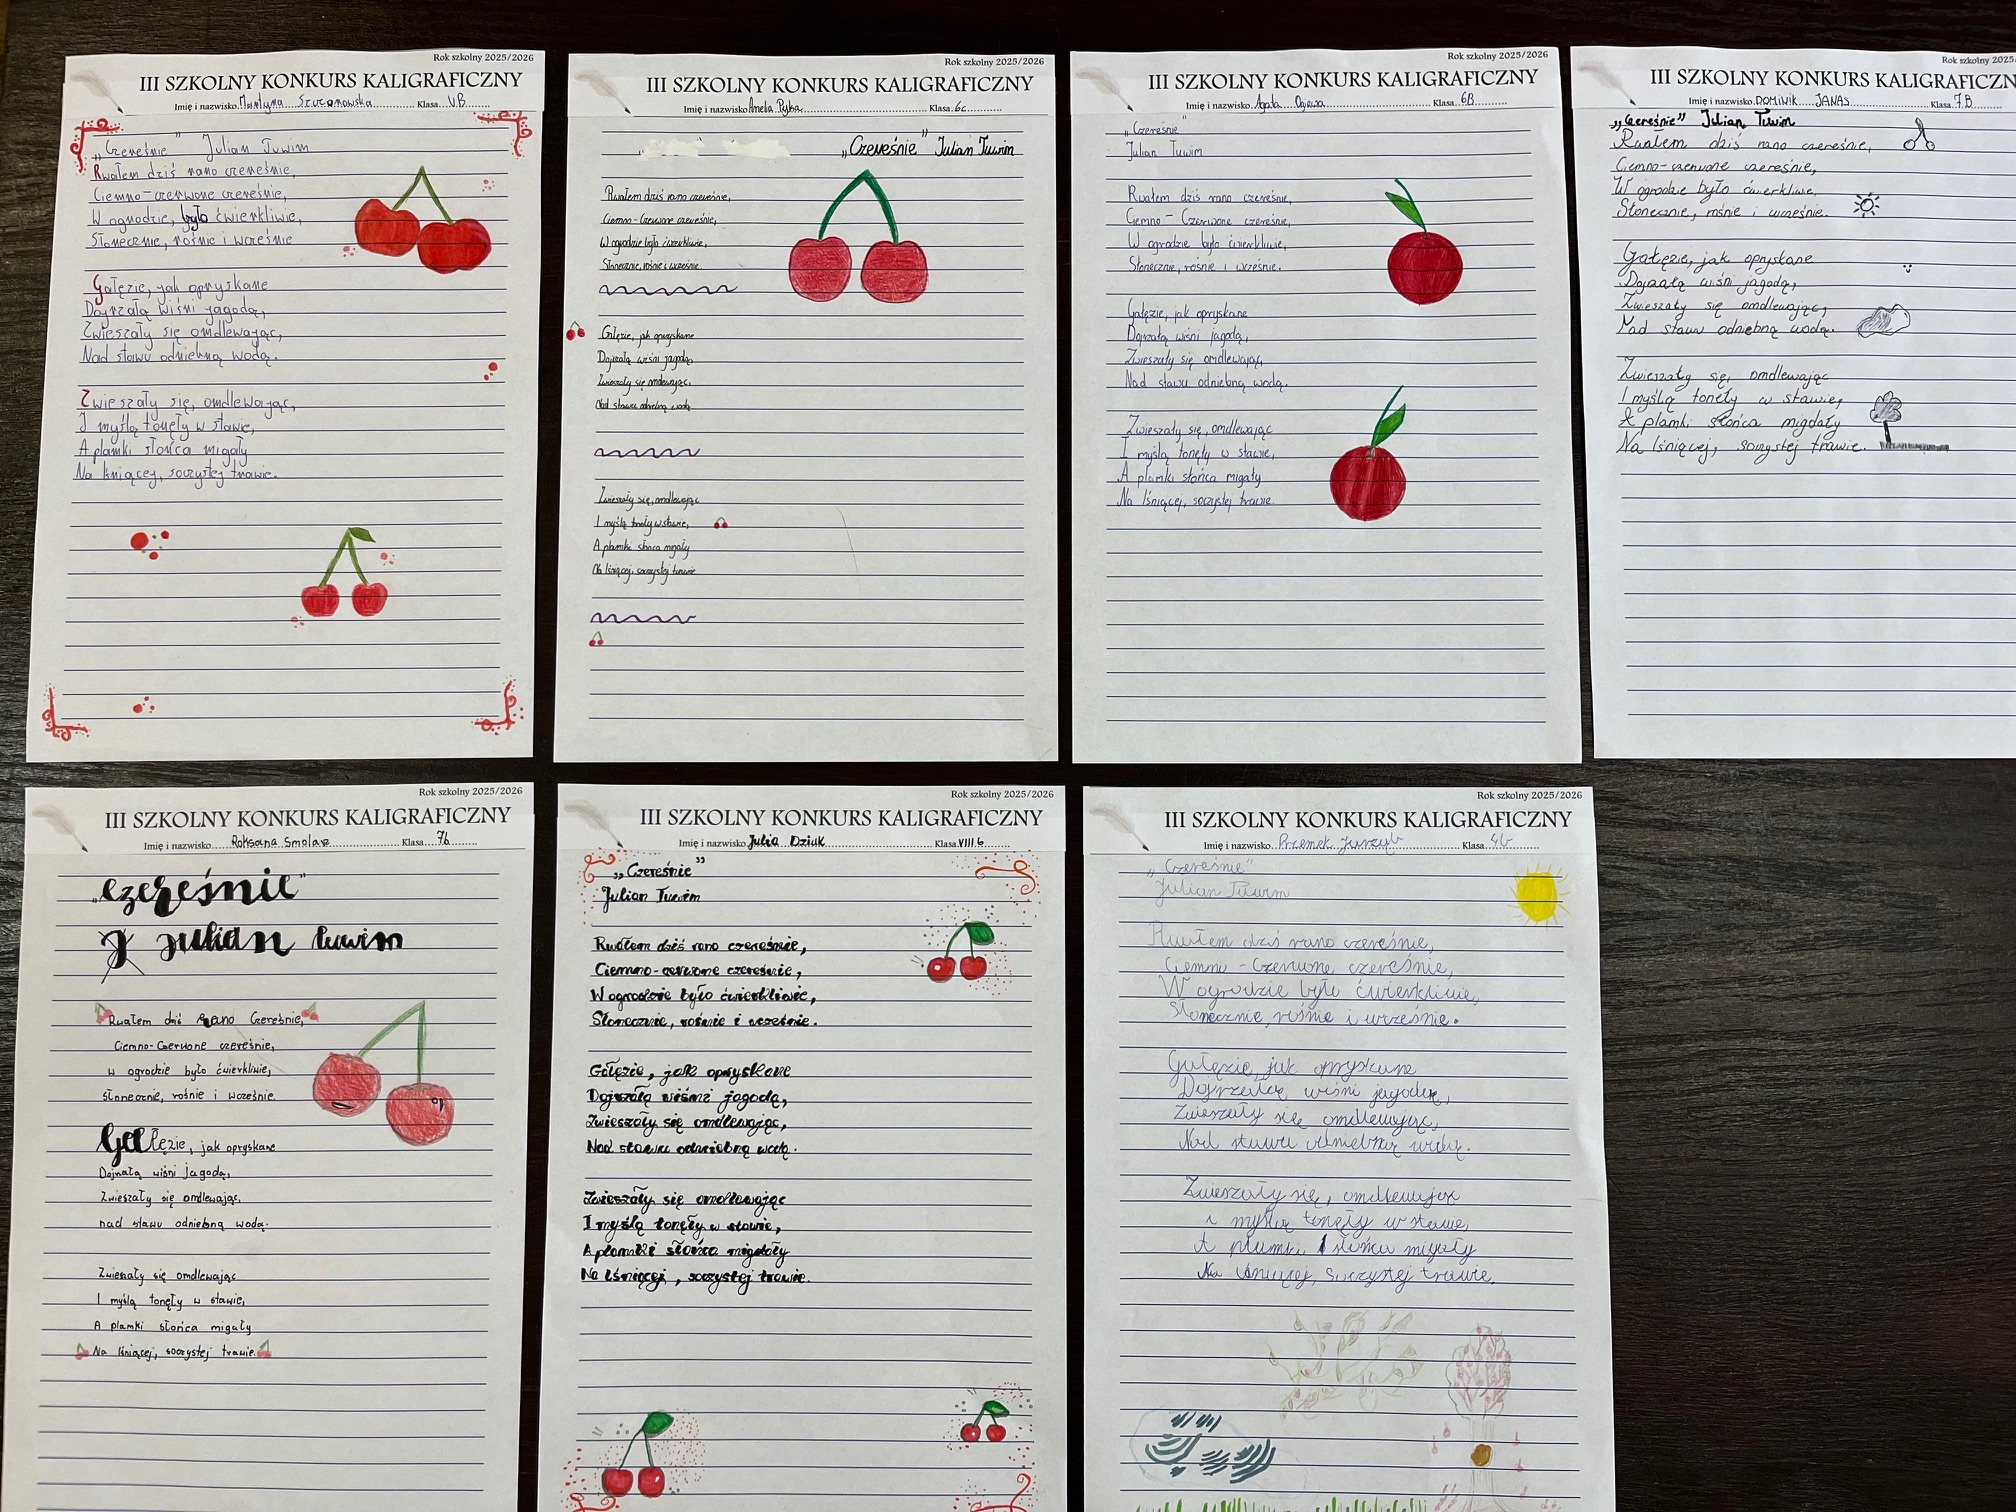 Rok szkolny 2025/2026
III SZKOLNY KONKURS KALIGRAFICZNY
Imię i nazwisko Martyna Szczanowska Klasa VB
„Czereśnie" Julian Tuwim
Rwałem dziś rano czereśnie,
Ciemno-czerwone czereśnie,
W ogrodzie, było ćwierkliwie,
Słonecznie, rośnie i wcześnie
Gałęzie, jak opryskane
Dojrzałą wiśni jagodą,
Zwieszały się omdlewając,
Nad stawu odniebną wodą.
Zwieszały się, omdlewając,
I myślą tonęły w stawie,
A plamki słońca migały
Na lśniącej, soczystej trawie.
Rok szkolny 2025/2026
III SZKOLNY KONKURS KALIGRAFICZNY
Imię i nazwisko Amelia Pyka Klasa 6c
„Czereśnie" Julian Tuwim
Rwałem dziś rano czereśnie,
Ciemno-Czerwone czereśnie,
W ogrodzie było ćwierkliwie,
Słonecznie, rośnie i wcześnie.
Gałęzie, jak opryskane
Dojrzałą wiśni jagodą,
Zwieszały się omdlewając,
Nad stawu odniebną wodą
Zwieszały się, omdlewając
I myślą tonęły w stawie,
A plamki słońca migały
Na lśniącej, soczystej trawie
Rok szkolny 2025/2026
III SZKOLNY KONKURS KALIGRAFICZNY
Imię i nazwisko Agata Klasa 6B
„Czereśnie"
Julian Tuwim
Rwałem dziś rano czereśnie,
Ciemno - Czerwone czereśnie,
W ogrodzie było ćwierkliwie,
Słonecznie, rośnie i wcześnie.
Gałęzie, jak opryskane
Dojrzałą wiśni jagodą,
Zwieszały się omdlewając,
Nad stawu odniebną wodą.
Zwieszały się, omdlewając
I myślą tonęły w stawie,
A plamki słońca migały
Na lśniącej, soczystej trawie.
Rok szkolny 2025/
III SZKOLNY KONKURS KALIGRAFICZN
Imię i nazwisko DOMINIK JANAS Klasa 7.B
„Czereśnie" Julian Tuwim
Rwałem dziś rano czereśnie,
Ciemno-czerwone czereśnie,
W ogrodzie było ćwierkliwie,
Słonecznie, rośnie i wcześnie.
Gałęzie, jak opryskane
Dojrzałą wiśni jagodą,
Zwieszały się omdlewając,
Nad stawu odniebną wodą.
Zwieszały się, omdlewając
I myślą tonęły w stawie,
A plamki słońca migdały
Na lśniącej, soczystej trawie.
Rok szkolny 2025/2026
III SZKOLNY KONKURS KALIGRAFICZNY
Imię i nazwisko Roksana Smolarz Klasa 7b
„czereśnie"
J Julian tuwim
Rwałem dziś rano Czereśnie,
Ciemno-Czerwone czereśnie,
w ogrodzie było ćwierkliwie,
słonecznie, rośnie i wcześnie.
Gałęzie, jak opryskane
Dojrzałą wiśni jagodą,
Zwieszały się omdlewając,
nad stawu odniebną wodą.
Zwieszały się omdlewając
I myślą tonęły w stawie,
A plamki słońca migały
Na lśniącej, soczystej trawie.
Rok szkolny 2025/2026
III SZKOLNY KONKURS KALIGRAFICZNY
Imię i nazwisko Julia Dziuk Klasa VIII b
„Czereśnie"
Julian Tuwim
Rwałem dziś rano czereśnie,
Ciemno-czerwone czereśnie,
W ogrodzie było ćwierkliwie,
Słonecznie, rośnie i wcześnie.
Gałęzie, jak opryskane
Dojrzałą wiśni jagodą,
Zwieszały się omdlewając,
Nad stawu odniebną wodą.
Zwieszały się omdlewając
I myślą tonęły w stawie,
A plamki słońca migdały
Na lśniącej, soczystej trawie.
Rok szkolny 2025/2026
III SZKOLNY KONKURS KALIGRAFICZNY
Imię i nazwisko Przemek Klasa 4b
„Czereśnie"
Julian Tuwim
Rwałem dziś rano czereśnie,
Ciemno - Czerwone czereśnie,
W ogrodzie było ćwierkliwie,
Słonecznie, rośnie i wcześnie.
Gałęzie, jak opryskane
Dojrzałą, wiśni jagodą,
Zwieszały się omdlewając,
Nad stawu odniebną wodą.
Zwieszały się, omdlewając
i myślą tonęły w stawie,
A plamki słońca migały
Na lśniącej, soczystej trawie.